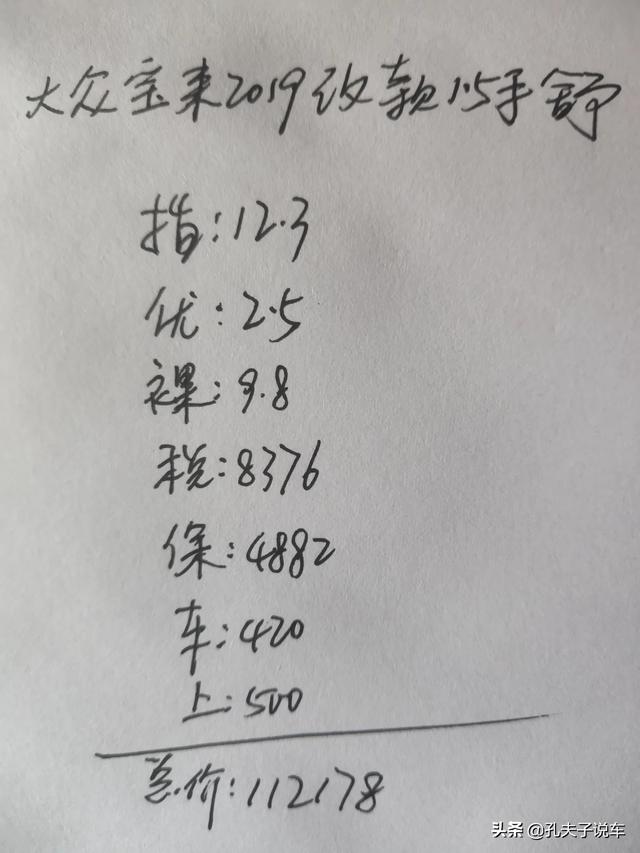 大众宝来2019改款1.5手舒
指:12.3
优:2.5
裸:9.8
税:8376
保:4882
车:420
上:500
总价:112178
头条 @孔夫子说车